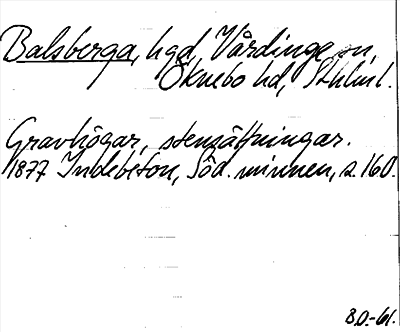 Balsberga, hgd, Vårdinge sn,
Öknebo hd, Sthlm l.
Gravhögar, stensättningar.
1877 Indebetou, Söd. minnen, s. 160.
B.O.-61.